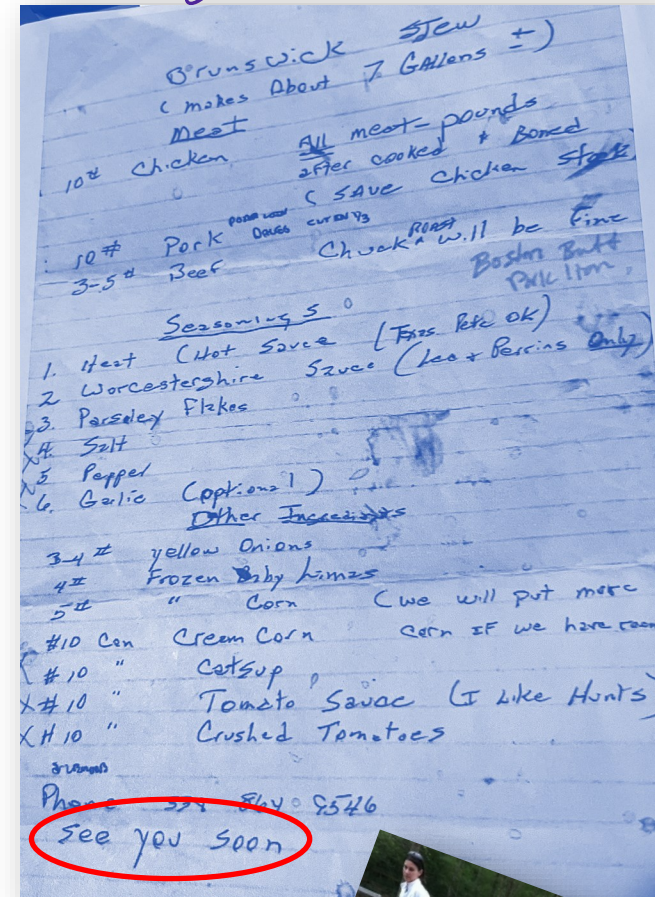 Brunswick Stew
(makes About 7 Gallons ±)
Meat
10# Chicken All meat - pounds
after cooked & Boned
(SAve Chicken stock
10# Pork cut in 1/3
3-5# Beef Chuck ROAST will be fine
Boston Butt
Pork
Seasonings
1. Heat (Hot Sauce (Texas Pete OK)
2 Worcestershire Sauce (Lea & Perrins Only)
3. Parseley Flakes
4. Salt
5 Pepper
6. Garlic (optional)
Other Ingredients
3-4# yellow Onions
4# Frozen Baby Limas
5# " Corn (we will put more
#10 Can Cream Corn corn IF we have room
#10 " Catsup
X #10 " Tomato Sauce (I Like Hunts)
X #10 " Crushed Tomatoes
Phone 864 9546
See you soon